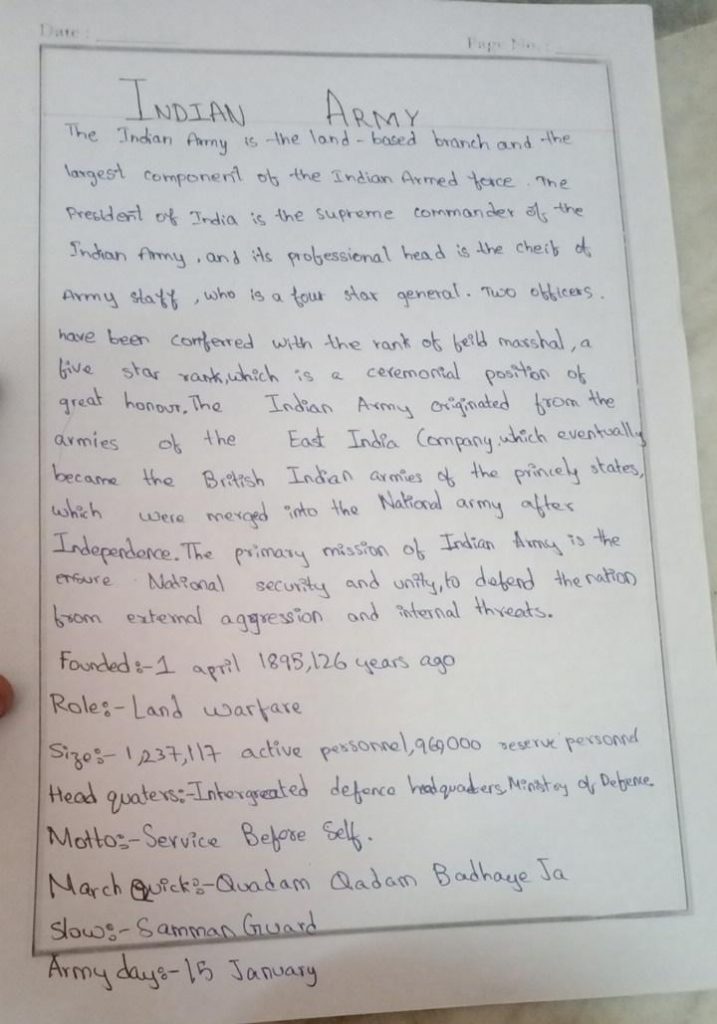 Date :
Page No. :
INDIAN ARMY
The Indian Army is the land-based branch and the
largest component of the Indian Armed force. The
President of India is the supreme commander of the
Indian Army, and its professional head is the cheif of
Army staff, who is a four star general. Two officers.
have been conferred with the rank of feild marshal, a
five star rank, which is a ceremonial position of
great honour. The Indian Army originated from the
armies of the East India Company, which eventually
became the British Indian armies of the princely states,
which were merged into the National army after
Independence. The primary mission of Indian Army is the
ensure National security and unity, to defend the nation
from external aggression and internal threats.
Founded:-1 april 1895,126 years ago
Role:-Land warfare
Size:-1,237,117 active personnel,960,000 reserve personnel
Head quaters:-Intergreated defence headquaders, Ministry of Defence.
Motto:-Service Before Self.
March Quick:-Quadam Qadam Badhaye Ja
Slow:-Samman Guard
Army day:-15 January